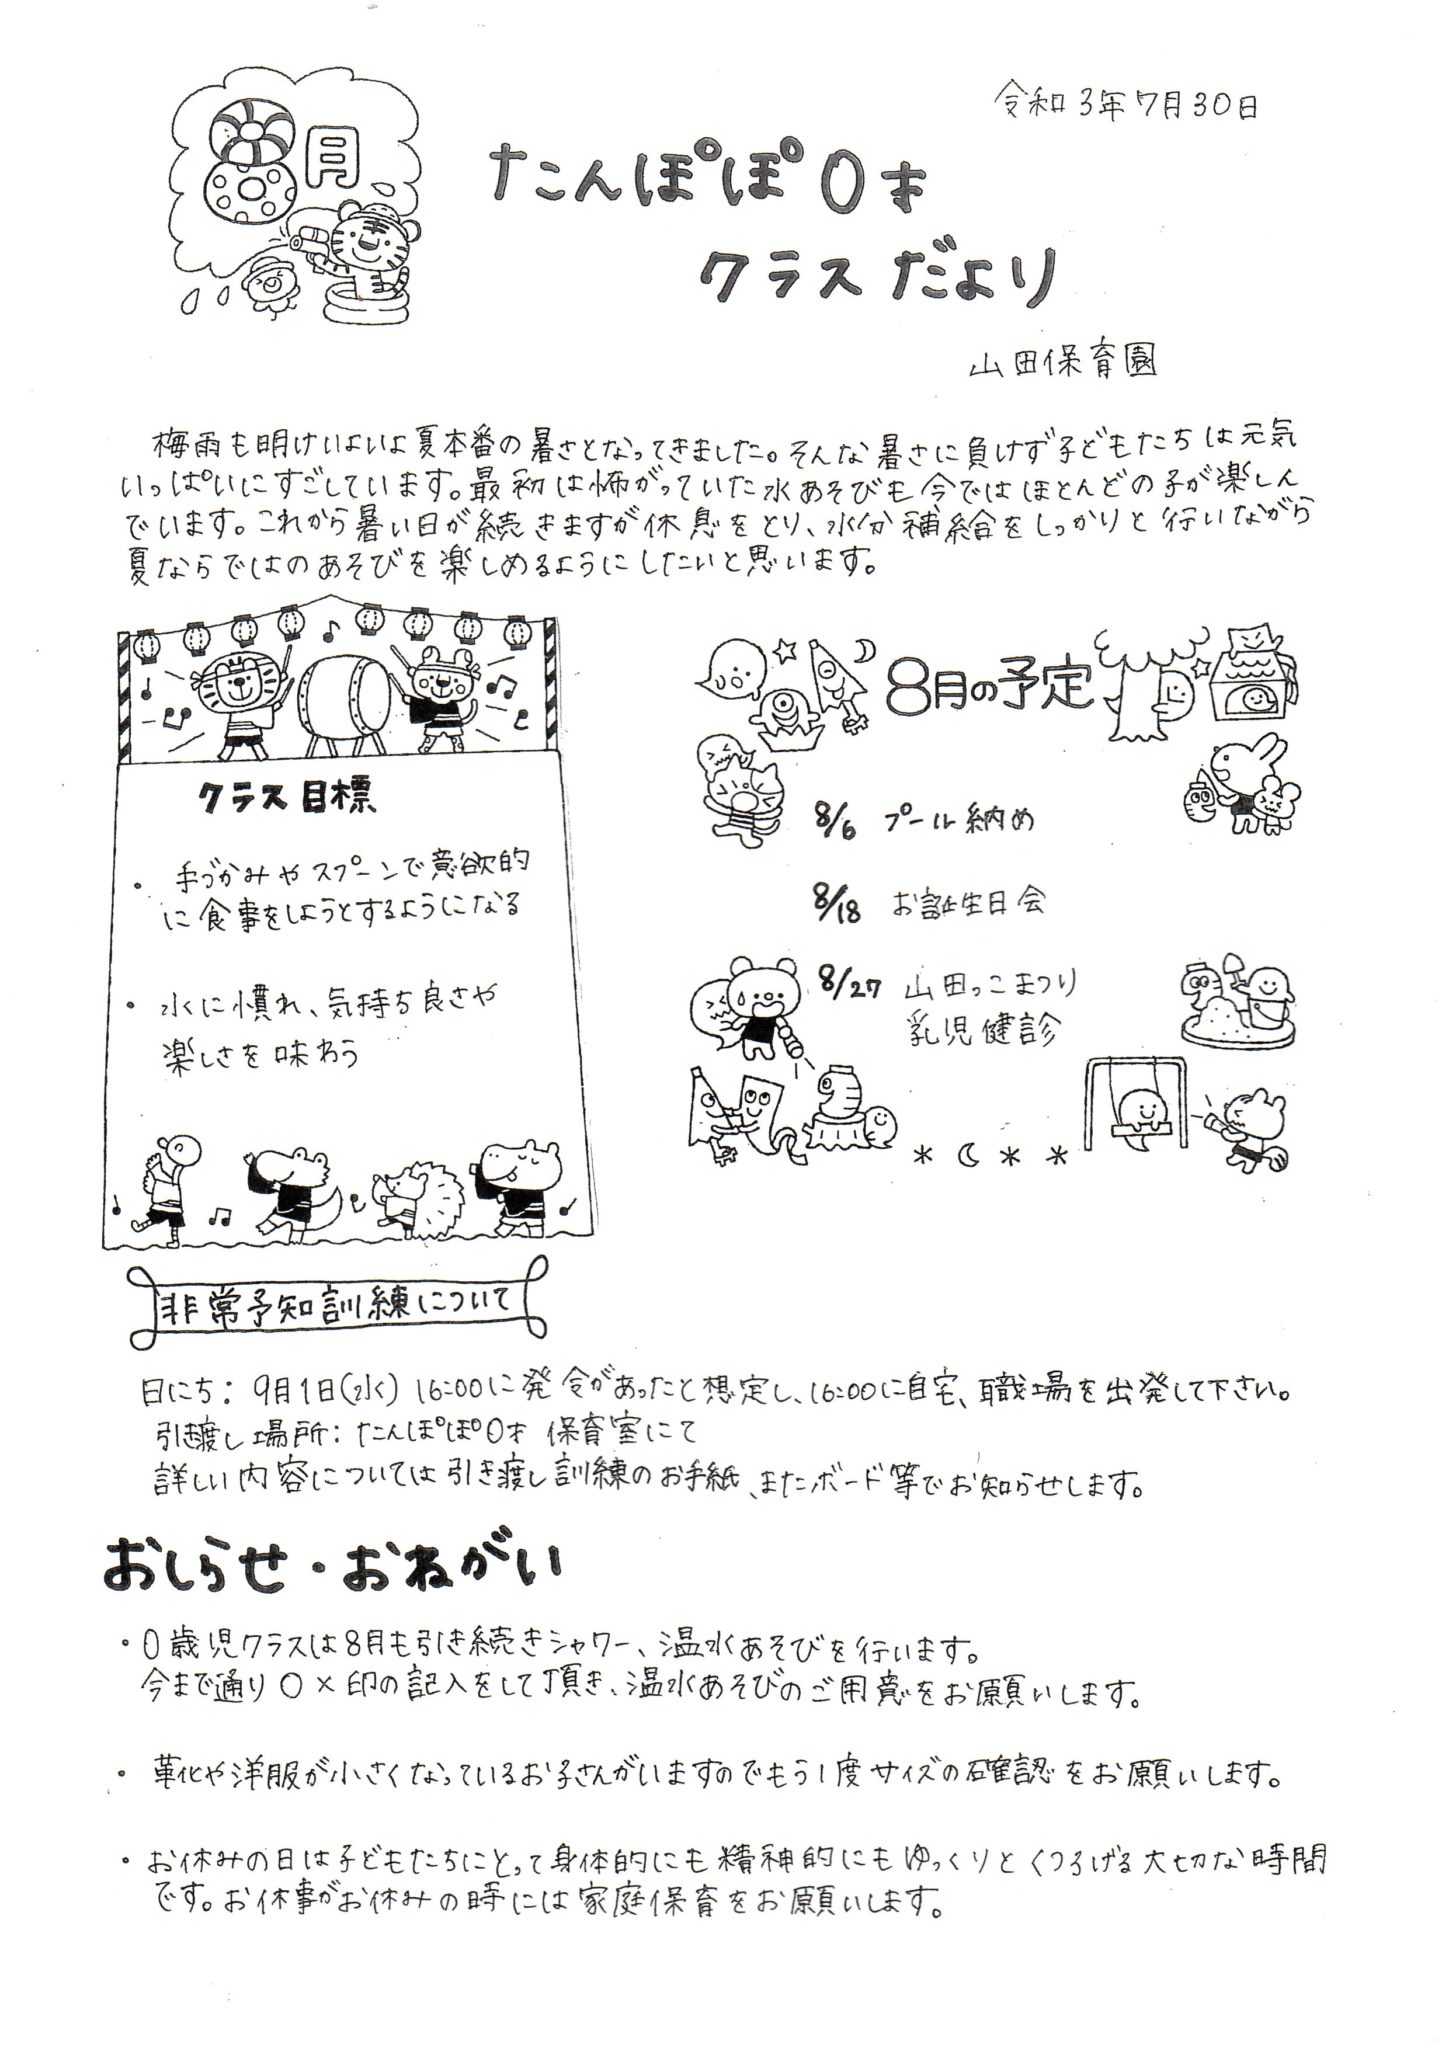 令和3年7月30日
8月
たんぽぽ0才
クラスだより
山田保育園
梅雨も明けいよいよ夏本番の暑さとなってきました。そんな暑さに負けず子どもたちは元気
いっぱいにすごしています。最初は怖がっていた水あそびも今ではほとんどの子が楽しん
でいます。これから暑い日が続きますが休息をとり、水分補給をしっかりと行いながら
夏ならではのあそびを楽しめるようにしたいと思います。
クラス目標
・手づかみやスプーンで意欲的
に食事をしようとするようになる
・水に慣れ、気持ち良さや
楽しさを味わう
8月の予定
8/6 プール納め
8/18 お誕生日会
8/27 山田っこまつり
乳児健診
非常予知訓練について
日にち:9月1日(水)16:00に発令があったと想定し、16:00に自宅、職場を出発して下さい。
引き渡し場所:たんぽぽ0才 保育室にて
詳しい内容については引き渡し訓練のお手紙、またボード等でお知らせします。
おしらせ・おねがい
・0歳児クラスは8月も引き続きシャワー、温水あそびを行います。
今まで通り〇×印の記入をして頂き、温水あそびのご用意をお願いします。
・靴や洋服が小さくなっているお子さんがいますのでもう1度サイズの確認をお願いします。
・お休みの日は子どもたちにとって身体的にも精神的にもゆっくりとくつろげる大切な時間
です。お仕事がお休みの時には家庭保育をお願いします。